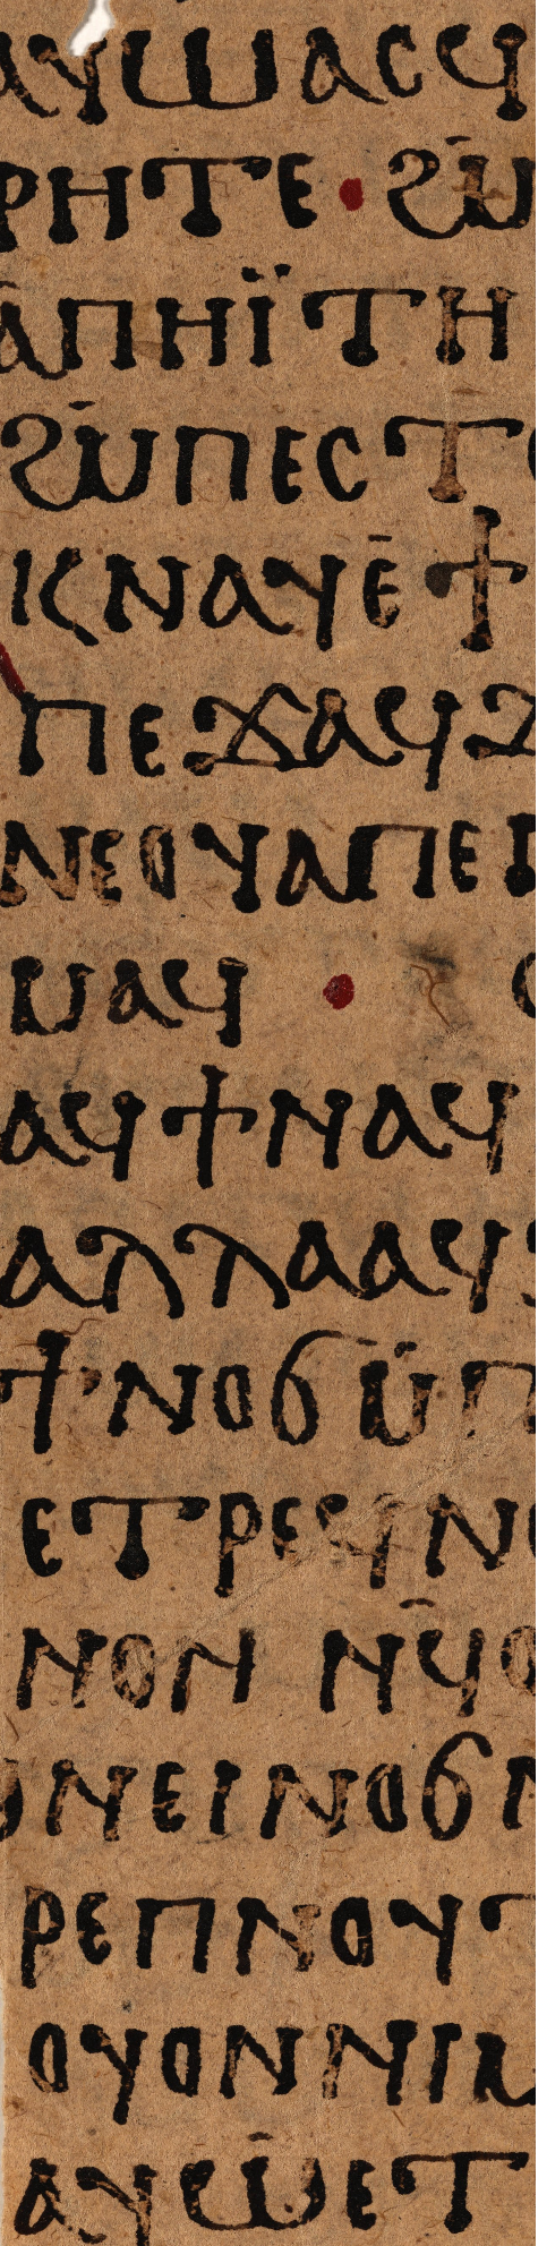 ⲁⲩϣⲁⲥϥ
ⲣⲏⲧⲉ· ϩⲙ̄
ⲁⲡⲏⲓ̈ⲧⲏ
ϩⲙ̄ⲡⲉⲥⲧ
ⲕⲛⲁⲩⲉ̄ϯ
ⲡⲉϫⲁϥ
ⲛⲉⲟⲩⲁⲡⲉ
ⲙⲁϥ ·
ⲁϥϯⲛⲁϥ
ⲁⲗⲗⲁⲁϥ
ϯⲛⲟϭⲙ̄ⲡ
ⲉⲧⲣⲉϥⲛ
ⲛⲟⲛ ⲛϥ̄ⲟ
ⲛⲉⲓⲛⲟϭⲛ
ⲣⲉⲡⲛⲟⲩⲧ
ⲟⲩⲟⲛⲛⲓⲙ
ⲁⲩⲱ̄ⲉⲧ